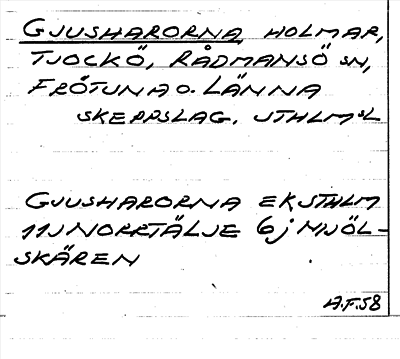 GJUSHARORNA HOLMAR,
TJOCKÖ, RÅDMANSÖ SN,
FRÖTUNA O. LÄNNA
SKEPPSLAG. STHLMSL
GJUSHARORNA EK STHLM
11J NORRTÄLJE 6j MJÖL-
SKÄREN
A.F.58